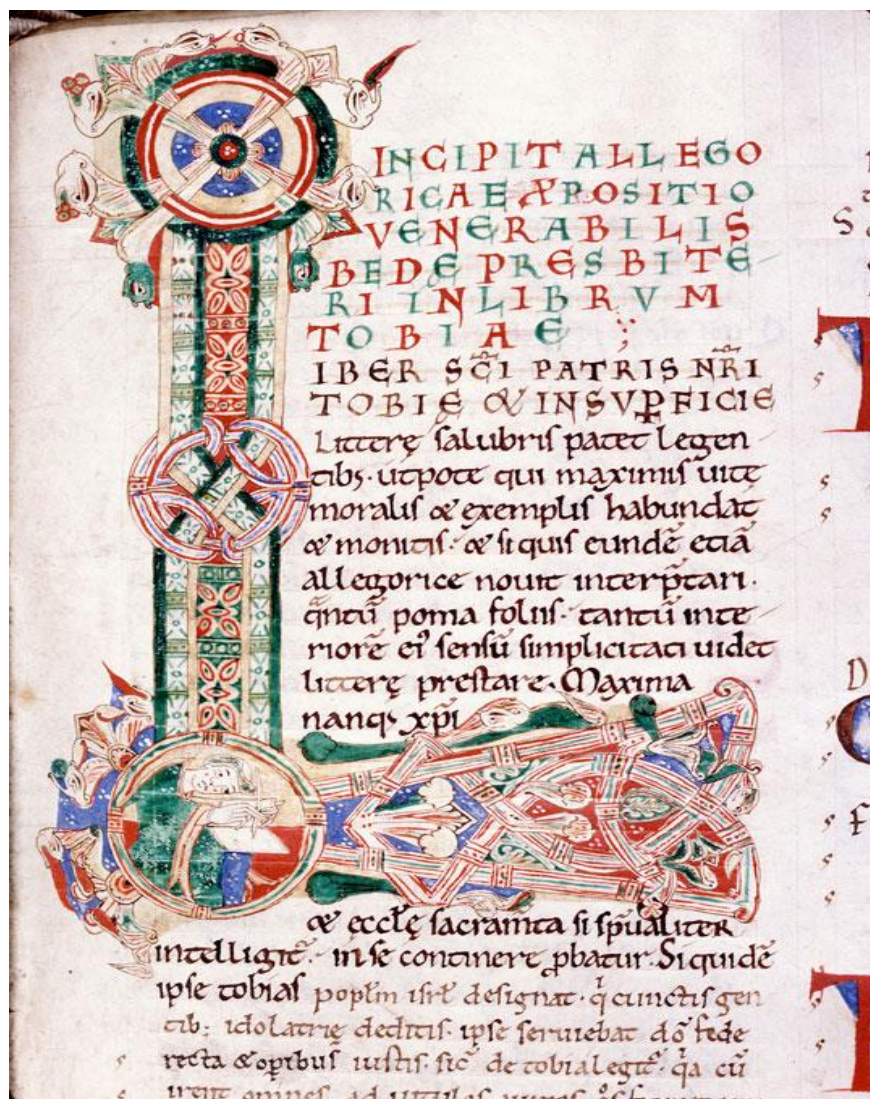 INCIPIT ALLEGO
RICAE EXPOSITIO
VENERABILIS
BEDĘ PRESBITE
RI IN LIBRVM
TOBIAE
IBER SC̄I PATRIS NR̄I
TOBIĘ & IN SVP̱FICIE
Litterę salubris patet legen
tib; utpote qui maximis uitę
moralis & exemplis habundat
& monitis. & si quis eundē etiā
allegorice nouit interp̄tari.
q̄ntū poma foliis. tantū inte
riorē ei᷒ sensū simplicitati uidet
litterę prestare. Maxima
nanq; xp̄i
& eccl̄ę sacram̄ta si sp̄ualiter
intelligit᷑. in se continere ꝓbatur. Siquidē
ipse tobias popl̄m isrl̄ designat. q̄ cunctis gen
tib; idolatrię deditis. ipse seruiebat dō fide
recta & oꝑibus iustis. sic̄ de tobia legit᷑. q̄a cū
irent omnes ad uitulos
S
D
F